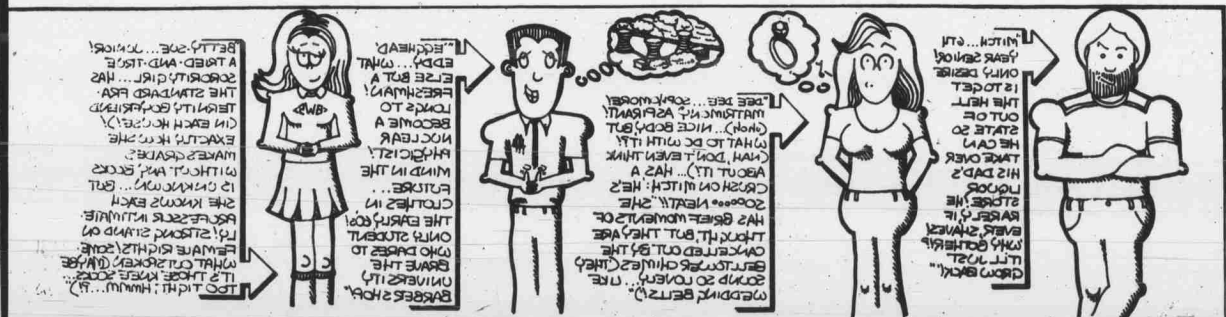 "MITCH...6TH
YEAR SENIOR!
ONLY DESIRE
IS TO GET
THE HELL
OUT OF
STATE SO
HE CAN
TAKE OVER
HIS DAD'S
LIQUOR
STORE! HE
RARELY, IF
EVER, SHAVES!
"WHY BOTHER?!
IT'LL JUST
GROW BACK!"
"DEE DEE... SOPHOMORE!
MATRIMONY ASPIRANT!
(OHOH)... NICE BODY BUT
WHAT TO DO WITH IT?!
(NAH, DON'T EVEN THINK
ABOUT IT!)... HAS A
CRUSH ON MITCH: 'HE'S
SOOOOO NEAT!!' SHE
HAS BRIEF MOMENTS OF
THOUGHT, BUT THEY ARE
CANCELLED OUT BY THE
BELLTOWER CHIMES (THEY
SOUND SO LOVELY... LIKE
WEDDING BELLS!)"
"'EGGHEAD'
EDDY... WHAT
ELSE BUT A
FRESHMAN!
LONGS TO
BECOME A
NUCLEAR
PHYSICIST!
MIND IN THE
FUTURE...
CLOTHES IN
THE EARLY '60s!
ONLY STUDENT
WHO DARES TO
BRAVE THE
UNIVERSITY
BARBER SHOP"
BETTY-SUE... JUNIOR!
A TRIED-AND-TRUE
SORORITY GIRL... HAS
THE STANDARD FRA-
TERNITY BOYFRIEND
(IN EACH HOUSE!)!
EXACTLY HOW SHE
MAKES GRADES
WITHOUT ANY BOOKS
IS UNKNOWN... BUT
SHE KNOWS EACH
PROFESSOR INTIMATE-
LY! STRONG STAND ON
FEMALE RIGHTS! SOME-
WHAT OUTSPOKEN (MAYBE
IT'S THOSE KNEE SOCKS...
TOO TIGHT; HMMM...?!)"